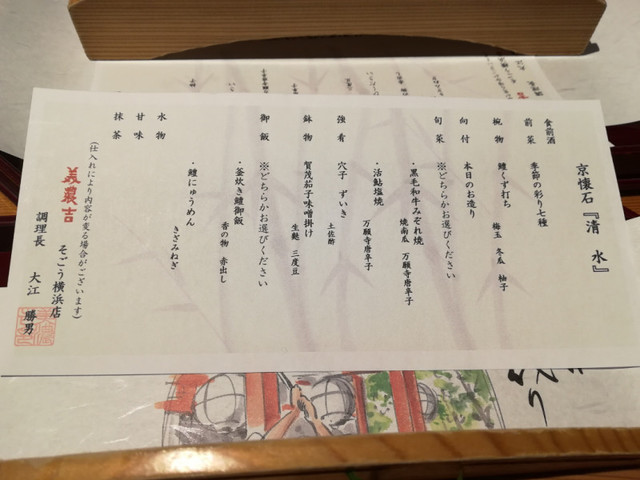 京懐石『清 水』
食前酒
前菜 季節の彩り七種
椀物 鱧くず打ち
梅玉 冬瓜 柚子
向付 本日のお造り
旬菜 ※どちらかお選びください
・黒毛和牛みぞれ焼
焼南瓜 万願寺唐辛子
・活鮎塩焼
万願寺唐辛子
強肴 穴子 ずいき
土佐酢
鉢物 賀茂茄子味噌掛け
生麩 三度豆
御飯 ※どちらかお選びください
・釜炊き鱧御飯
香の物 赤出し
・鱧にゅうめん
きざみねぎ
水物
甘味
抹茶
(仕入れにより内容が変る場合がございます)
美濃吉 そごう横浜店
調理長 大江 勝男